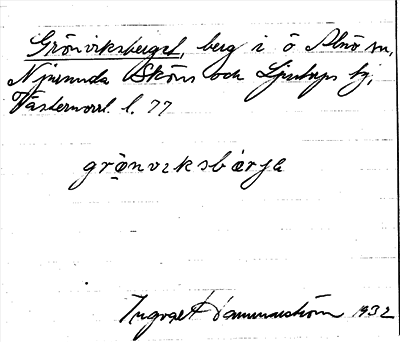 Grönviksberget, berg i ö Alnö sn,
Njurunda Sköns och Ljustorps tg,
Västernorrl. l. 77
grönviksbärjə
Ingegerd 1932